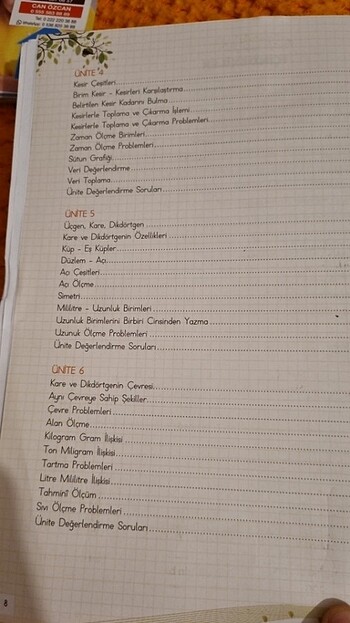 CAN ÖZCAN
ÜNİTE 4
Kesir Çeşitleri
Birim Kesir - Kesirleri Karşılaştırma
Belirtilen Kesir Kadarını Bulma
Kesirlerle Toplama ve Çıkarma İşlemi
Kesirlerle Toplama ve Çıkarma Problemleri
Zaman Ölçme Birimleri
Zaman Ölçme Problemleri
Sütun Grafiği
Veri Değerlendirme
Veri Toplama
Ünite Değerlendirme Soruları
ÜNİTE 5
Üçgen, Kare, Dikdörtgen
Kare ve Dikdörtgenin Özellikleri
Küp - Eş Küpler
Düzlem - Açı
Açı Çeşitleri
Açı Ölçme
Simetri
Mililitre - Uzunluk Birimleri
Uzunluk Birimlerini Birbiri Cinsinden Yazma
Uzunuk Ölçme Problemleri
Ünite Değerlendirme Soruları
ÜNİTE 6
Kare ve Dikdörtgenin Çevresi
Aynı Çevreye Sahip Şekiller
Çevre Problemleri
Alan Ölçme
Kilogram Gram İlişkisi
Ton Miligram İlişkisi
Tartma Problemleri
Litre Mililitre İlişkisi
Tahminî Ölçüm
Sıvı Ölçme Problemleri
Ünite Değerlendirme Soruları
8